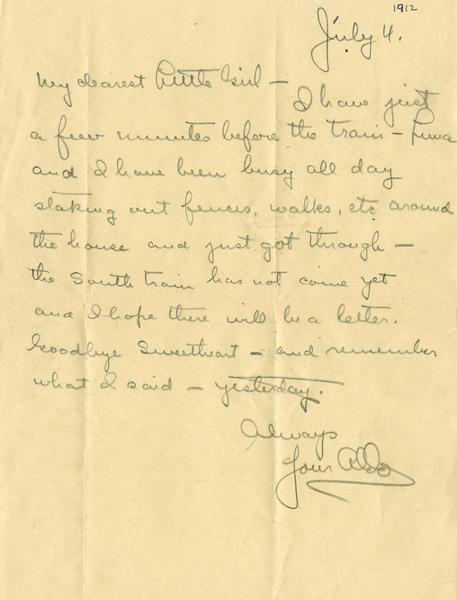 1912
July 4.
My dearest Little Girl —
I have just
a few minutes before the train —
and I have been busy all day
staking out fences, walks, etc around
the house and just got through —
the South train has not come yet
and I hope there will be a letter.
Goodbye Sweetheart — and remember
what I said — yesterday.
Always
Your Aldo